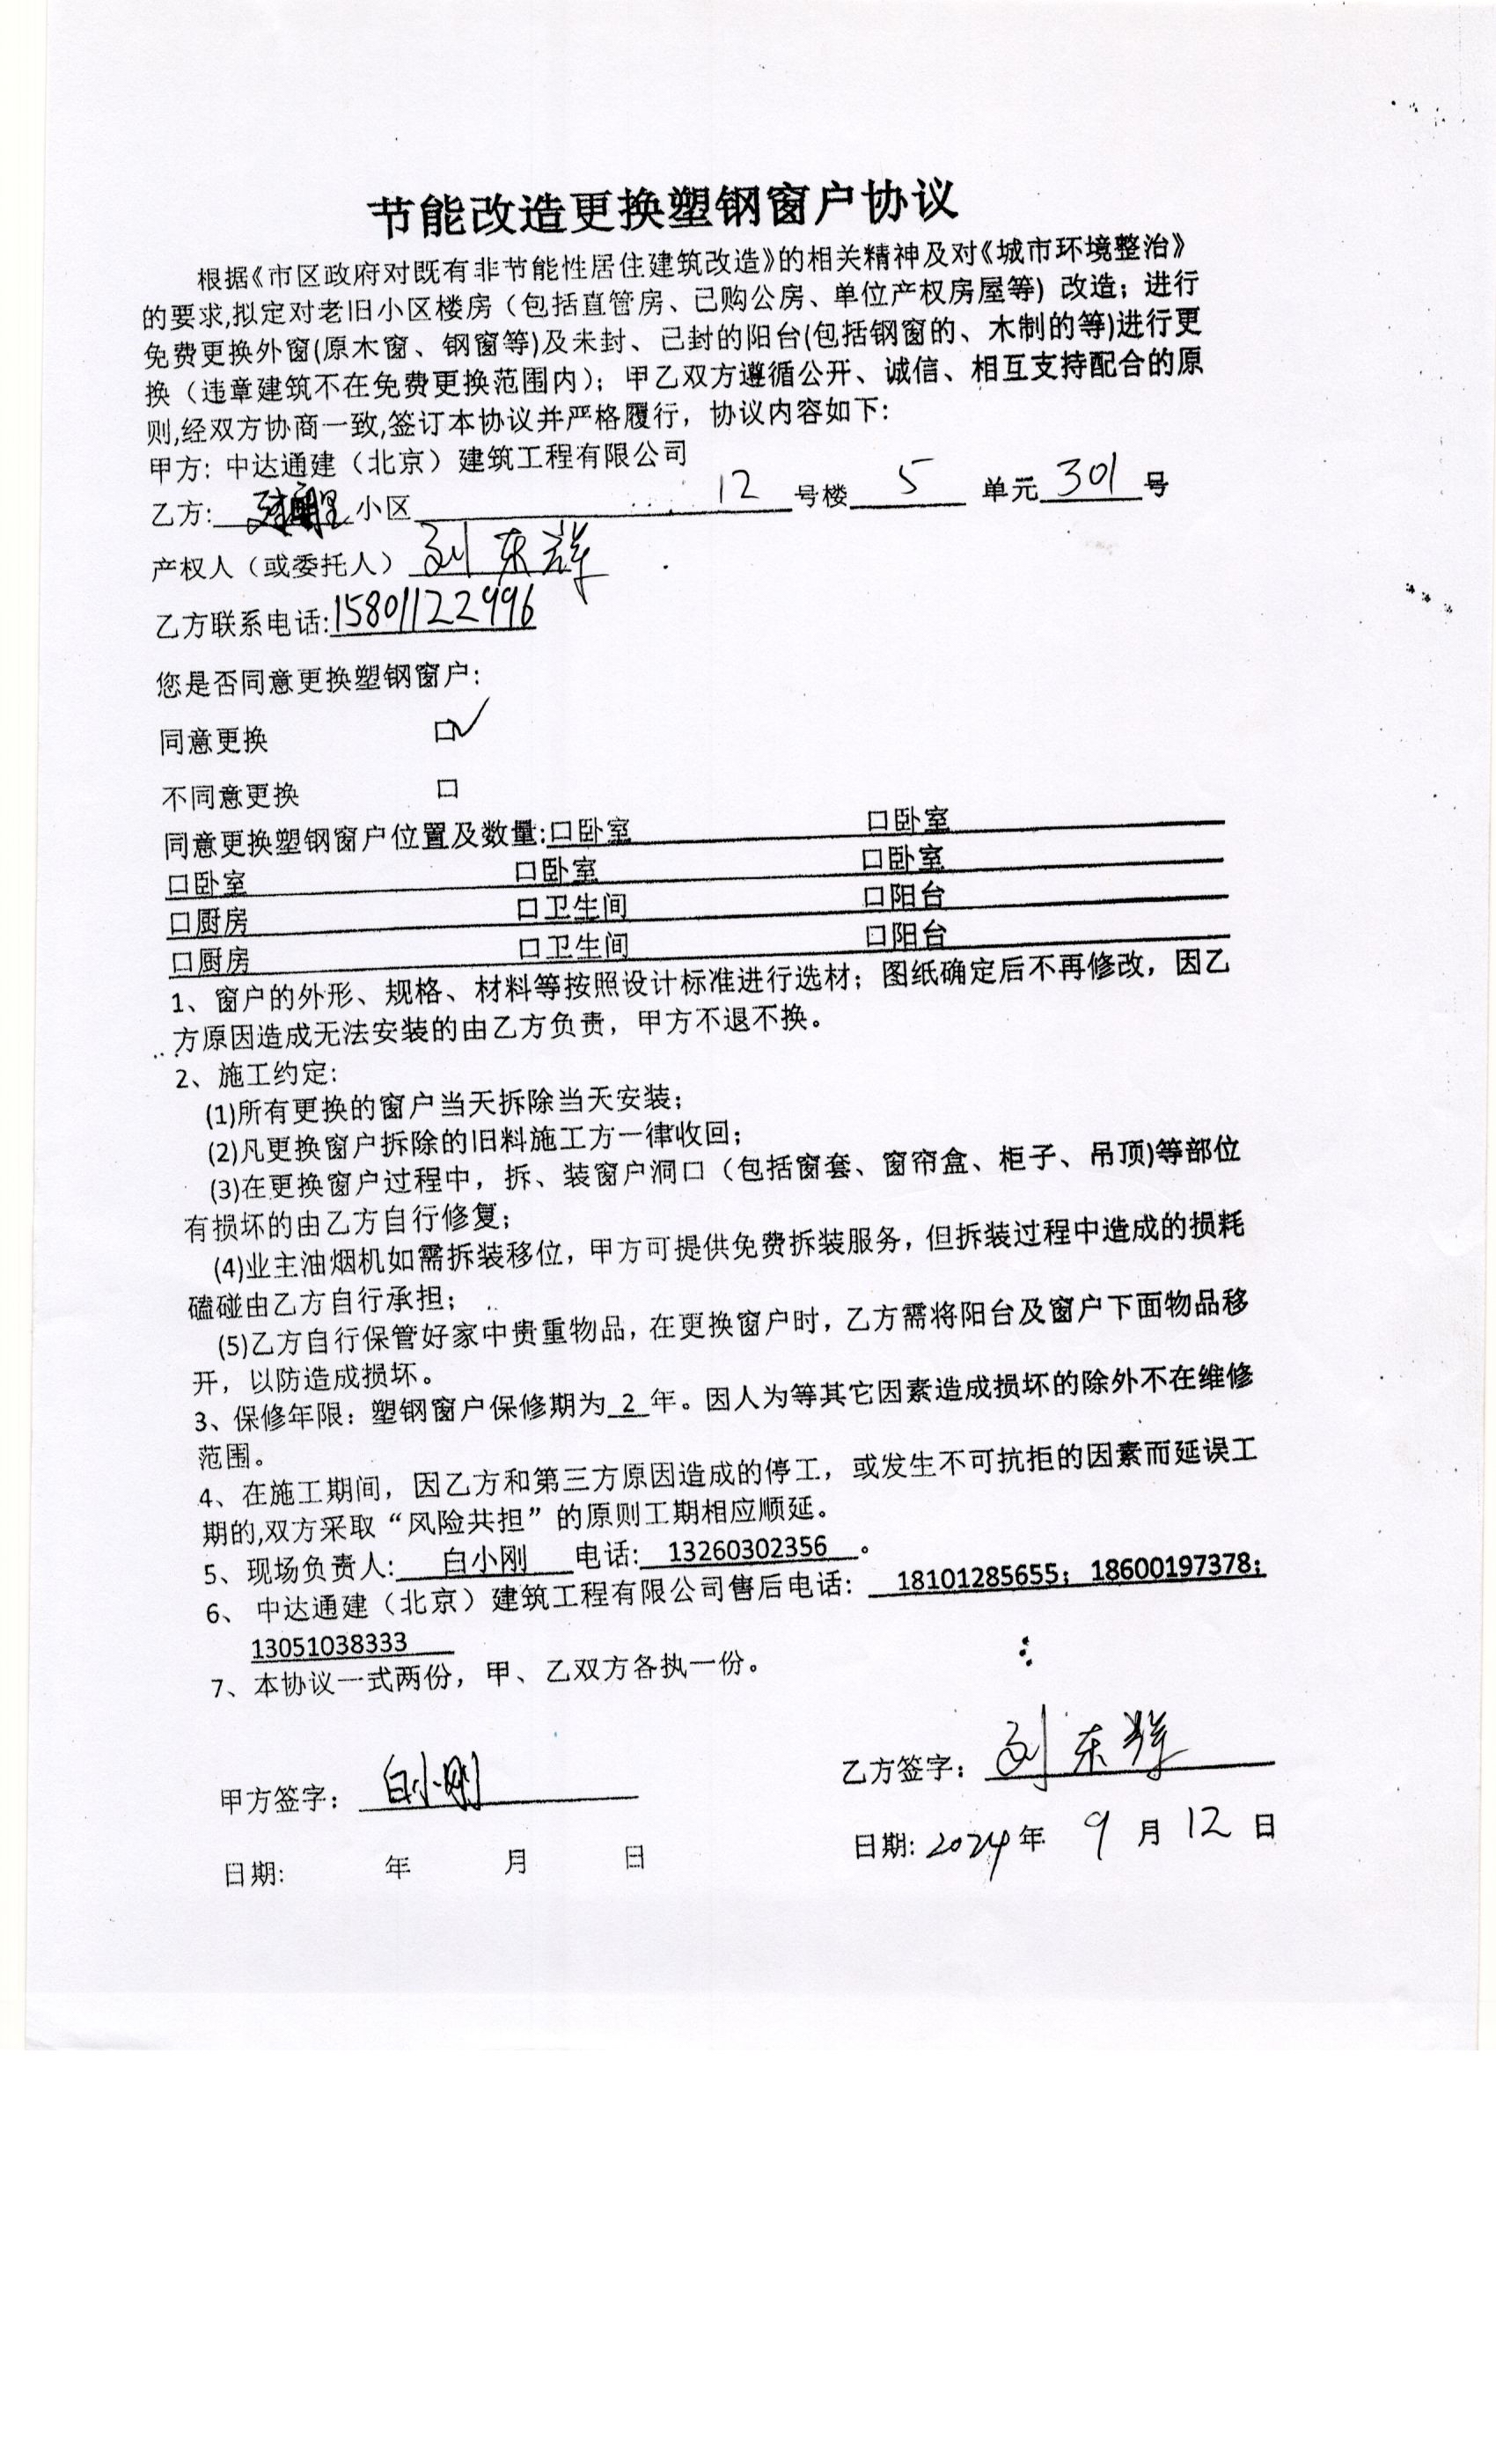 节能改造更换塑钢窗户协议
根据《市区政府对既有非节能性居住建筑改造》的相关精神及对《城市环境整治》
的要求,拟定对老旧小区楼房（包括直管房、已购公房、单位产权房屋等）改造；进行
免费更换外窗(原木窗、钢窗等)及未封、已封的阳台(包括钢窗的、木制的等)进行更
换（违章建筑不在免费更换范围内）；甲乙双方遵循公开、诚信、相互支持配合的原
则,经双方协商一致,签订本协议并严格履行，协议内容如下:
甲方: 中达通建（北京）建筑工程有限公司
乙方: 小区 12 号楼 5 单元 301 号
产权人（或委托人）刘东辉
乙方联系电话:15801122996
您是否同意更换塑钢窗户:
同意更换 □✓
不同意更换 □
同意更换塑钢窗户位置及数量:□卧室 □卧室
□卧室 □卧室 □卧室
□厨房 □卫生间 □阳台
□厨房 □卫生间 □阳台
1、窗户的外形、规格、材料等按照设计标准进行选材；图纸确定后不再修改，因乙
方原因造成无法安装的由乙方负责，甲方不退不换。
2、施工约定:
(1)所有更换的窗户当天拆除当天安装；
(2)凡更换窗户拆除的旧料施工方一律收回；
(3)在更换窗户过程中，拆、装窗户洞口（包括窗套、窗帘盒、柜子、吊顶)等部位
有损坏的由乙方自行修复；
(4)业主油烟机如需拆装移位，甲方可提供免费拆装服务，但拆装过程中造成的损耗
磕碰由乙方自行承担；
(5)乙方自行保管好家中贵重物品，在更换窗户时，乙方需将阳台及窗户下面物品移
开，以防造成损坏。
3、保修年限：塑钢窗户保修期为 2 年。因人为等其它因素造成损坏的除外不在维修
范围。
4、在施工期间，因乙方和第三方原因造成的停工，或发生不可抗拒的因素而延误工
期的,双方采取“风险共担”的原则工期相应顺延。
5、现场负责人: 白小刚 电话: 13260302356 。
6、 中达通建（北京）建筑工程有限公司售后电话: 18101285655；18600197378；
13051038333
7、本协议一式两份，甲、乙双方各执一份。
甲方签字： 白小刚 乙方签字： 刘东辉
日期: 年 月 日 日期: 2024年 9 月 12 日